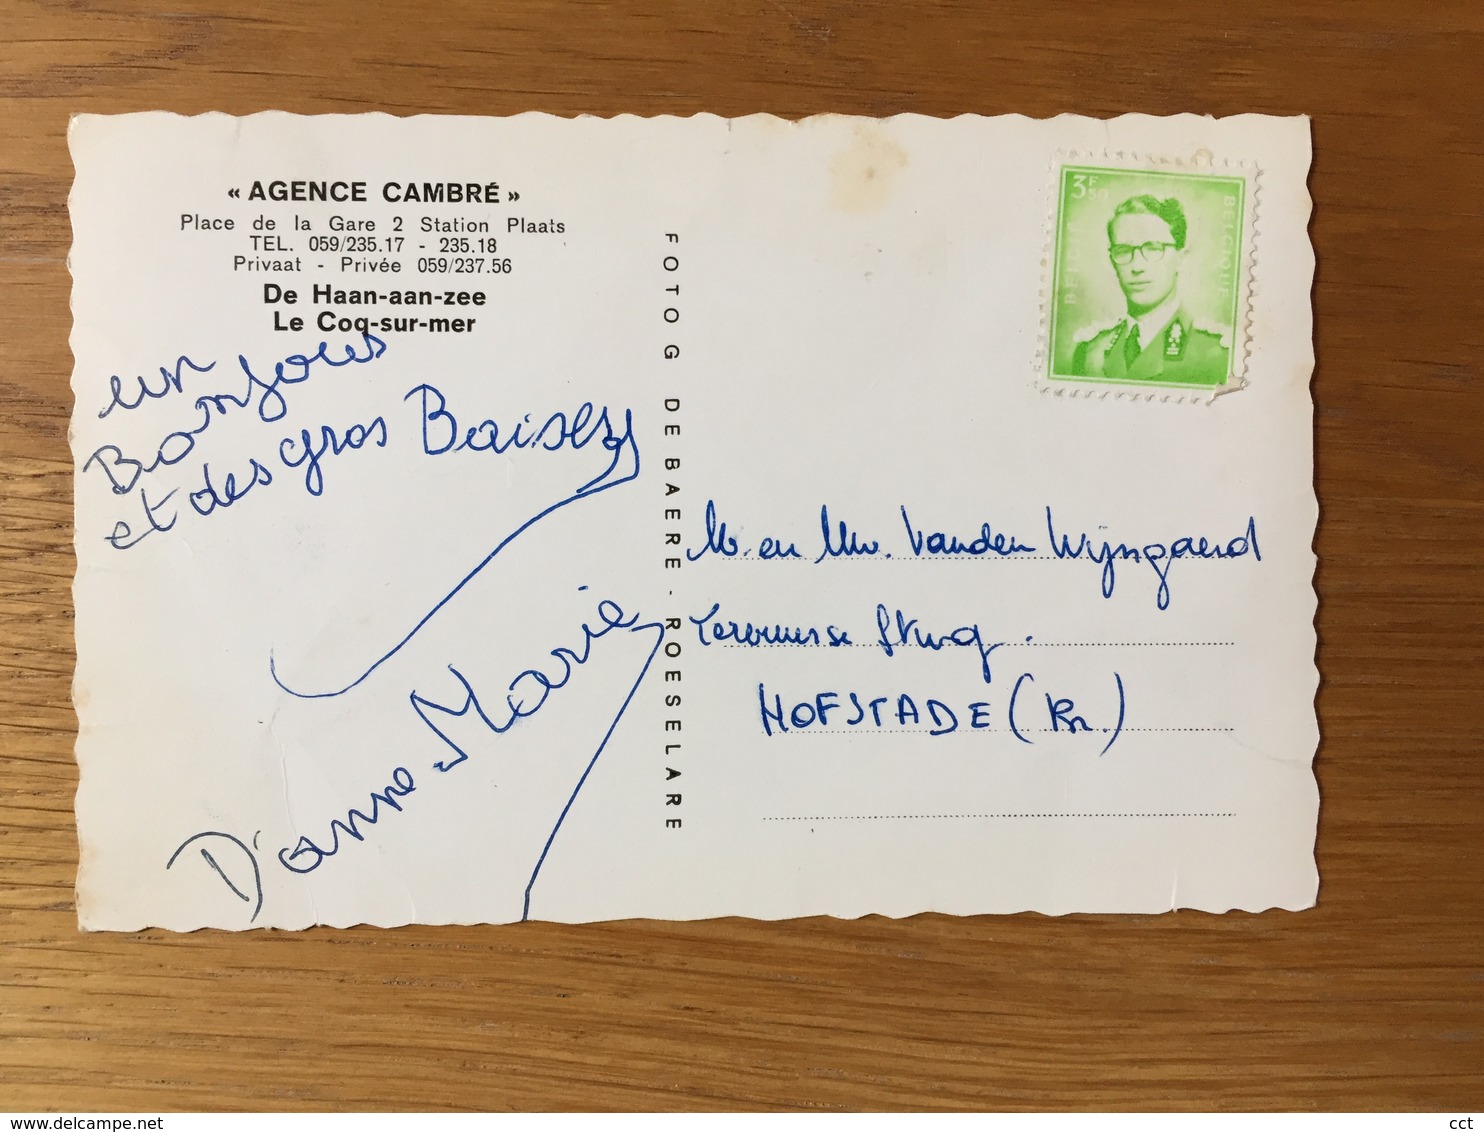 « AGENCE CAMBRÉ »
Place de la Gare 2 Station Plaats
TEL. 059/235.17 - 235.18
Privaat - Privée 059/237.56
De Haan-aan-zee
Le Coq-sur-mer
un
Bonjour
et des gros Baisers
D'anne-Marie
FOTO G DE BAERE - ROESELARE
3F50
BELGIE
BELGIQUE
M. en Mw. Vanden Wijngaerd
HOFSTADE
delcampe.net
cct